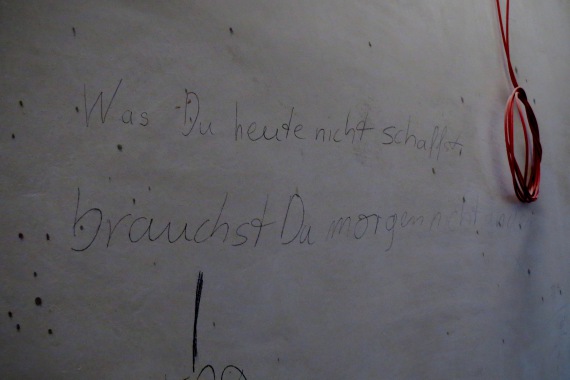 Was Du heute nicht schaffst,
brauchst Du morgen nicht